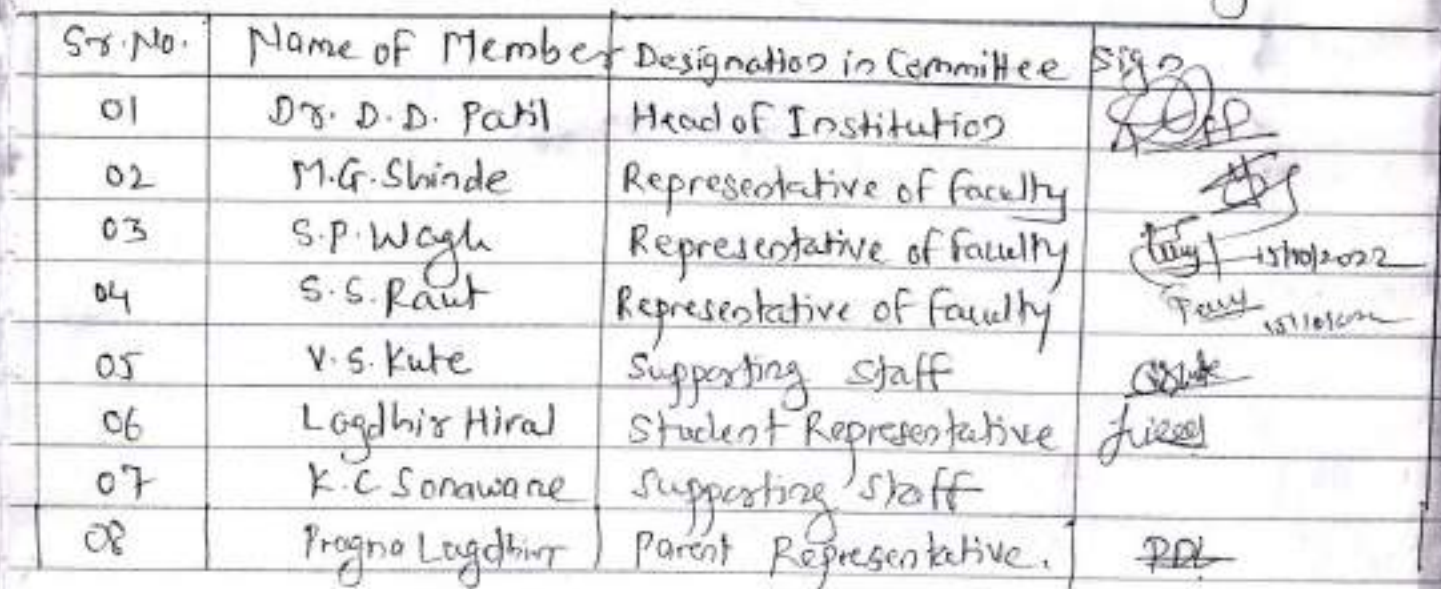 Sr. No. Name of Member Designation in Committee Sign
01 Dr. D. D. Patil Head of Institution
02 M.G. Shinde Representative of faculty
03 S.P. Wagh Representative of faculty 15/10/2022
04 S.S. Raut Representative of faculty
05 V.S. Kute Supporting Staff
06 Lagdhir Hiral Student Representative
07 K.C Sonawane Supporting Staff
08 Pragna Lagdhir Parent Representative. PDL